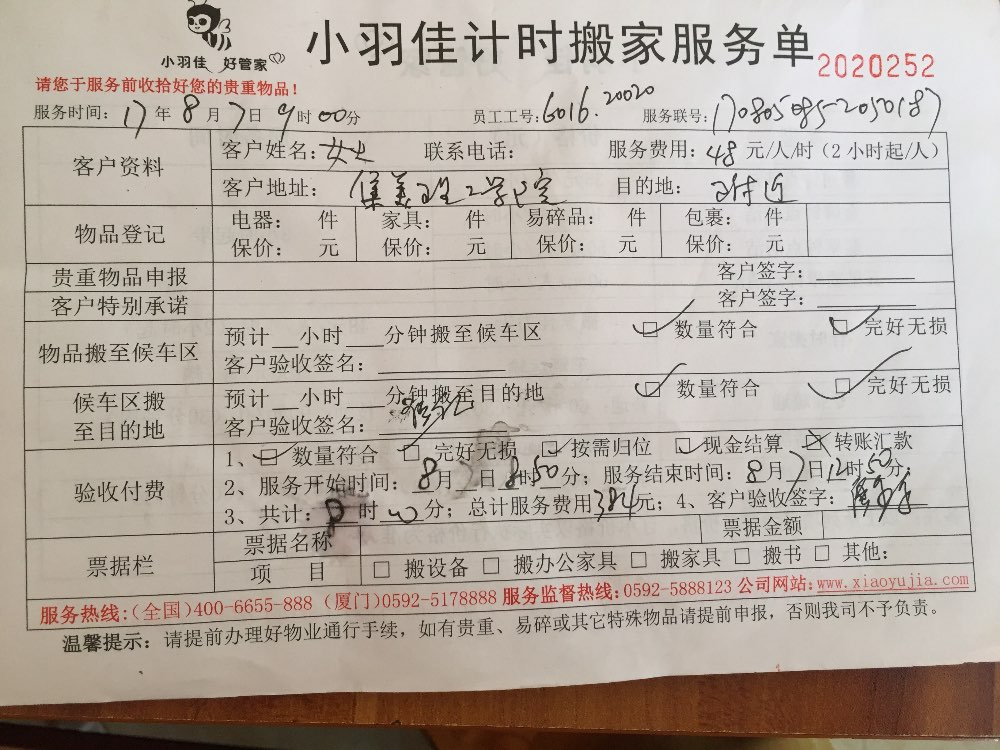 小羽佳 好管家
小羽佳计时搬家服务单
2020252
请您于服务前收拾好您的贵重物品!
服务时间: 17 年 8 月 7 日 9 时 00 分 员工工号: 6016.20020 服务联号:
客户资料 客户姓名: 女士 联系电话: 服务费用: 48 元/人/时 (2 小时起/人)
客户地址: 集美理工学院 目的地: 附近
物品登记 电器: 件 家具: 件 易碎品: 件 包裹: 件
保价: 元 保价: 元 保价: 元 保价: 元
贵重物品申报 客户签字:
客户特别承诺 客户签字:
物品搬至候车区 预计 小时 分钟搬至候车区 数量符合 完好无损
客户验收签名:
候车区搬至目的地 预计 小时 分钟搬至目的地 数量符合 完好无损
客户验收签名:
验收付费 1、 数量符合 完好无损 按需归位 现金结算 转账汇款
2、服务开始时间: 8 月 7 日 8 时 50 分; 服务结束时间: 8 月 7 日 12 时 50 分;
3、共计: 时 分; 总计服务费用 384 元; 4、客户验收签字:
票据栏 票据名称 票据金额
项 目 □ 搬设备 □ 搬办公家具 □ 搬家具 □ 搬书 □ 其他:
服务热线:(全国)400-6655-888 (厦门)0592-5178888 服务监督热线:0592-5888123 公司网站:www.xiaoyujia.com
温馨提示: 请提前办理好物业通行手续, 如有贵重、易碎或其它特殊物品请提前申报, 否则我司不予负责。